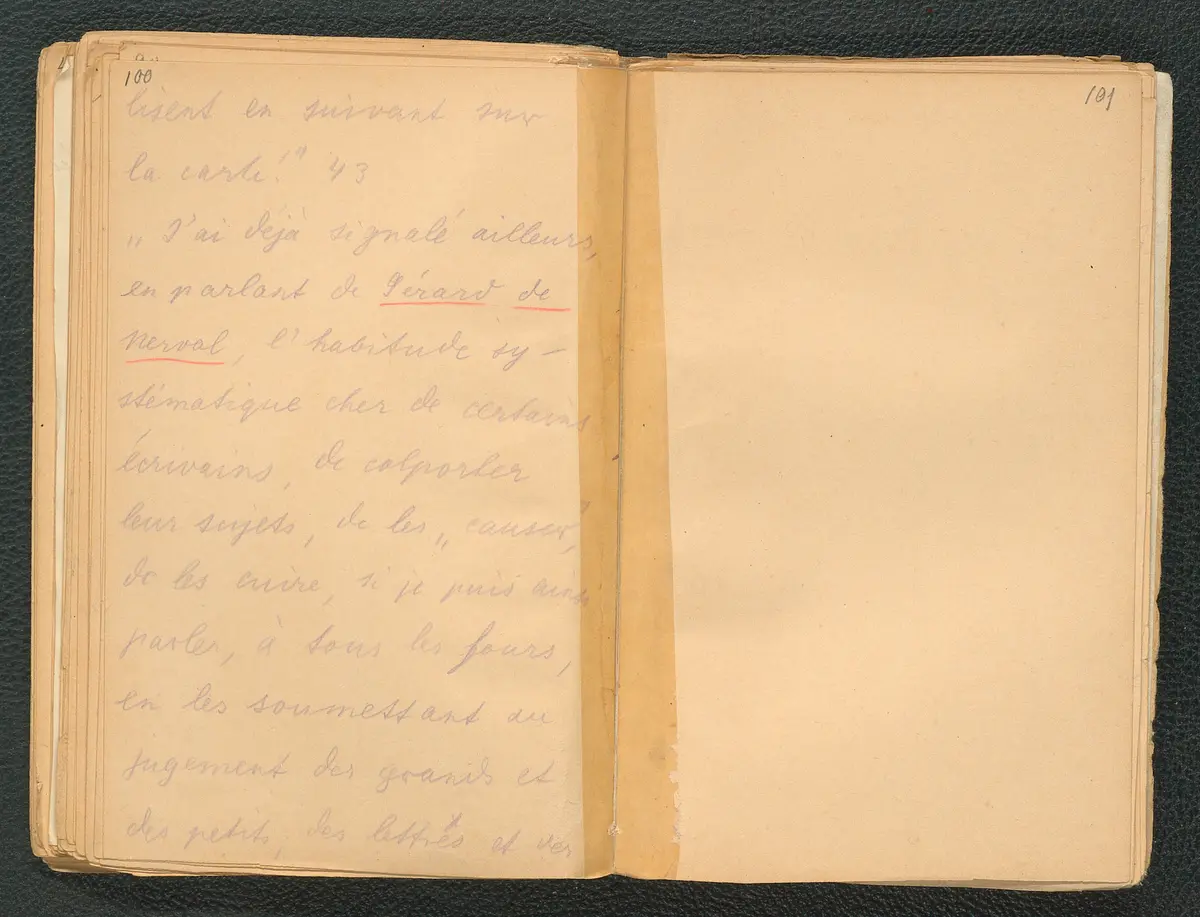 100
lisent en suivant sur
la carte!" 43
„ J'ai déjà signalé ailleurs,
en parlant de Gérard de
Nerval, l'habitude sy-
stématique cher de certains
écrivains, de colporter
leur sujets, de les „causer",
de les cuire, si je puis ainsi
parler, à tous les fours,
en les soumettant au
jugement des grands et
des petits, des lettrés et des
101